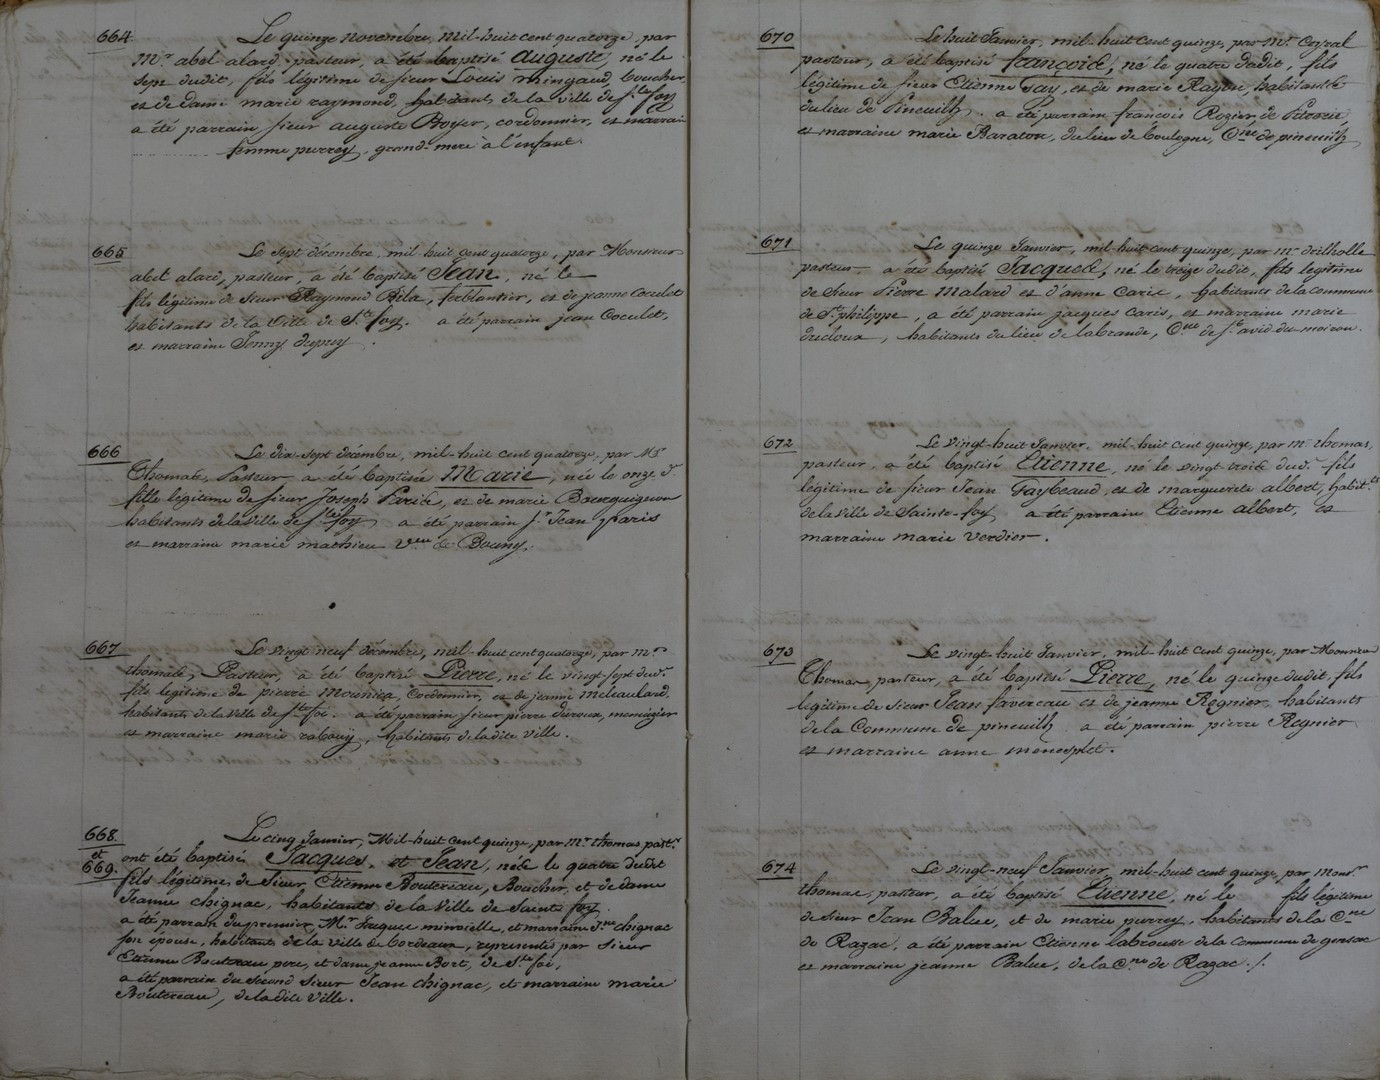 664
Le quinze novembre, mil-huit cent quatorze, par
Mr. abel alard, pasteur, a été baptisé auguste, né le
sept dudit, fils légitime de sieur Louis mingaud, boucher
et de dame marie raymond, habitants de la ville de ste foy
a été parrain sieur auguste Boyer, cordonnier, et marraine
femme perrey, grand-mere à l'enfant.
665
Le sept décembre, mil huit cent quatorze, par Monsieur
abel alard, pasteur, a été baptisé Jean, né le
fils légitime de sieur Raymond Bila, ferblantier, et de jeanne Coculet
habitants de la Ville de Ste foy. a été parrain jean Coculet,
et marraine Jenny dupuy.
666
Le dix-sept décembre, mil-huit cent quatorze, par Mr
Thomas, Pasteur a été baptisée Marie, née le onze dt
fille légitime de sieur Joseph Paris, et de marie Bourguignon
habitants de la Ville de ste foy a été parrain sr Jean paris
et marraine marie mathieu Veuve de Bouny.
667
Le vingt neuf décembre, mil-huit cent quatorze, par mr.
thomas, Pasteur, a été baptisé Pierre, né le vingt sept dudt.
fils légitime de pierre mounica, Cordonnier, et de jeanne
habitants de la Ville de ste foi. a été parrain sieur pierre duroux, menuizier
et marraine marie rabouy, habitants de la dite Ville.
668
et
669.
Le cinq Janvier, Mil-huit cent quinze, par Mr. thomas, pastr.
ont été baptisés Jacques, et Jean, nés le quatre dudit
fils légitimes de Sieur Etienne Boutereau, Boucher, et de dame
Jeanne chignac, habitants de la Ville de Sainte foy.
a été parrain du premier, Mr. Jacques minvielle, et marraine Jne chignac
son épouse, habitants de la ville de bordeaux, représentés par Sieur
Etienne Boutereau pere, et dame jeanne Bort, de Ste foi,
a été parrain du second Sieur Jean chignac, et marraine marie
Boutereau, de la dite Ville.
670
Le huit Janvier, mil-huit cent quinze, par Mr.
pasteur, a été baptisé françois, né le quatre dudit, fils
légitime de sieur Etienne Fay, et de marie Raynre, habitants
du lieu de Pineuilh. a été parrain françois Rozier, de
et marraine marie Baraton, du lieu de boulogne, Cne de pineuilh
671
Le quinze Janvier, mil-huit cent quinze, par mr. deilholle
pasteur a été baptisé Jacques, né le treize dudit, fils légitime
de Sieur Pierre Malard et d'anne Caris, habitants de la commune
de St. philippe, a été parrain jacques Caris, et marraine marie
dudoux, habitants du lieu de labrande, Cne de st. avid du moiron.
672
Le vingt-huit Janvier, mil-huit cent quinze, par mr thomas,
pasteur, a été baptisé Etienne, né le vingt-trois dud. fils
légitime de sieur Jean Faybeaud, et de marguerite albert, habitts
de la ville de Sainte-foy. a été parrain Etienne albert, et
marraine marie Verdier.
673
Le vingt-huit Janvier, mil-huit cent quinze, par Monsieur
Thomas, pasteur, a été baptisé Pierre, né le quinze dudit, fils
légitime de Sieur Jean favereau et de jeanne Regnier, habitants
de la Commune de pineuilh. a été parrain pierre Regnier
et marraine anne menesplet.
674
Le vingt-neuf Janvier mil-huit cent quinze, par Monsr
thomas, pasteur, a été baptisé Etienne, né le fils légitime
de Sieur Jean Balue, et de marie perrey, habitants de la Cne
de Razac, a été parrain Etienne labrousse de la Commune de gensac
et marraine jeanne Balue, de la Cne de Razac./.